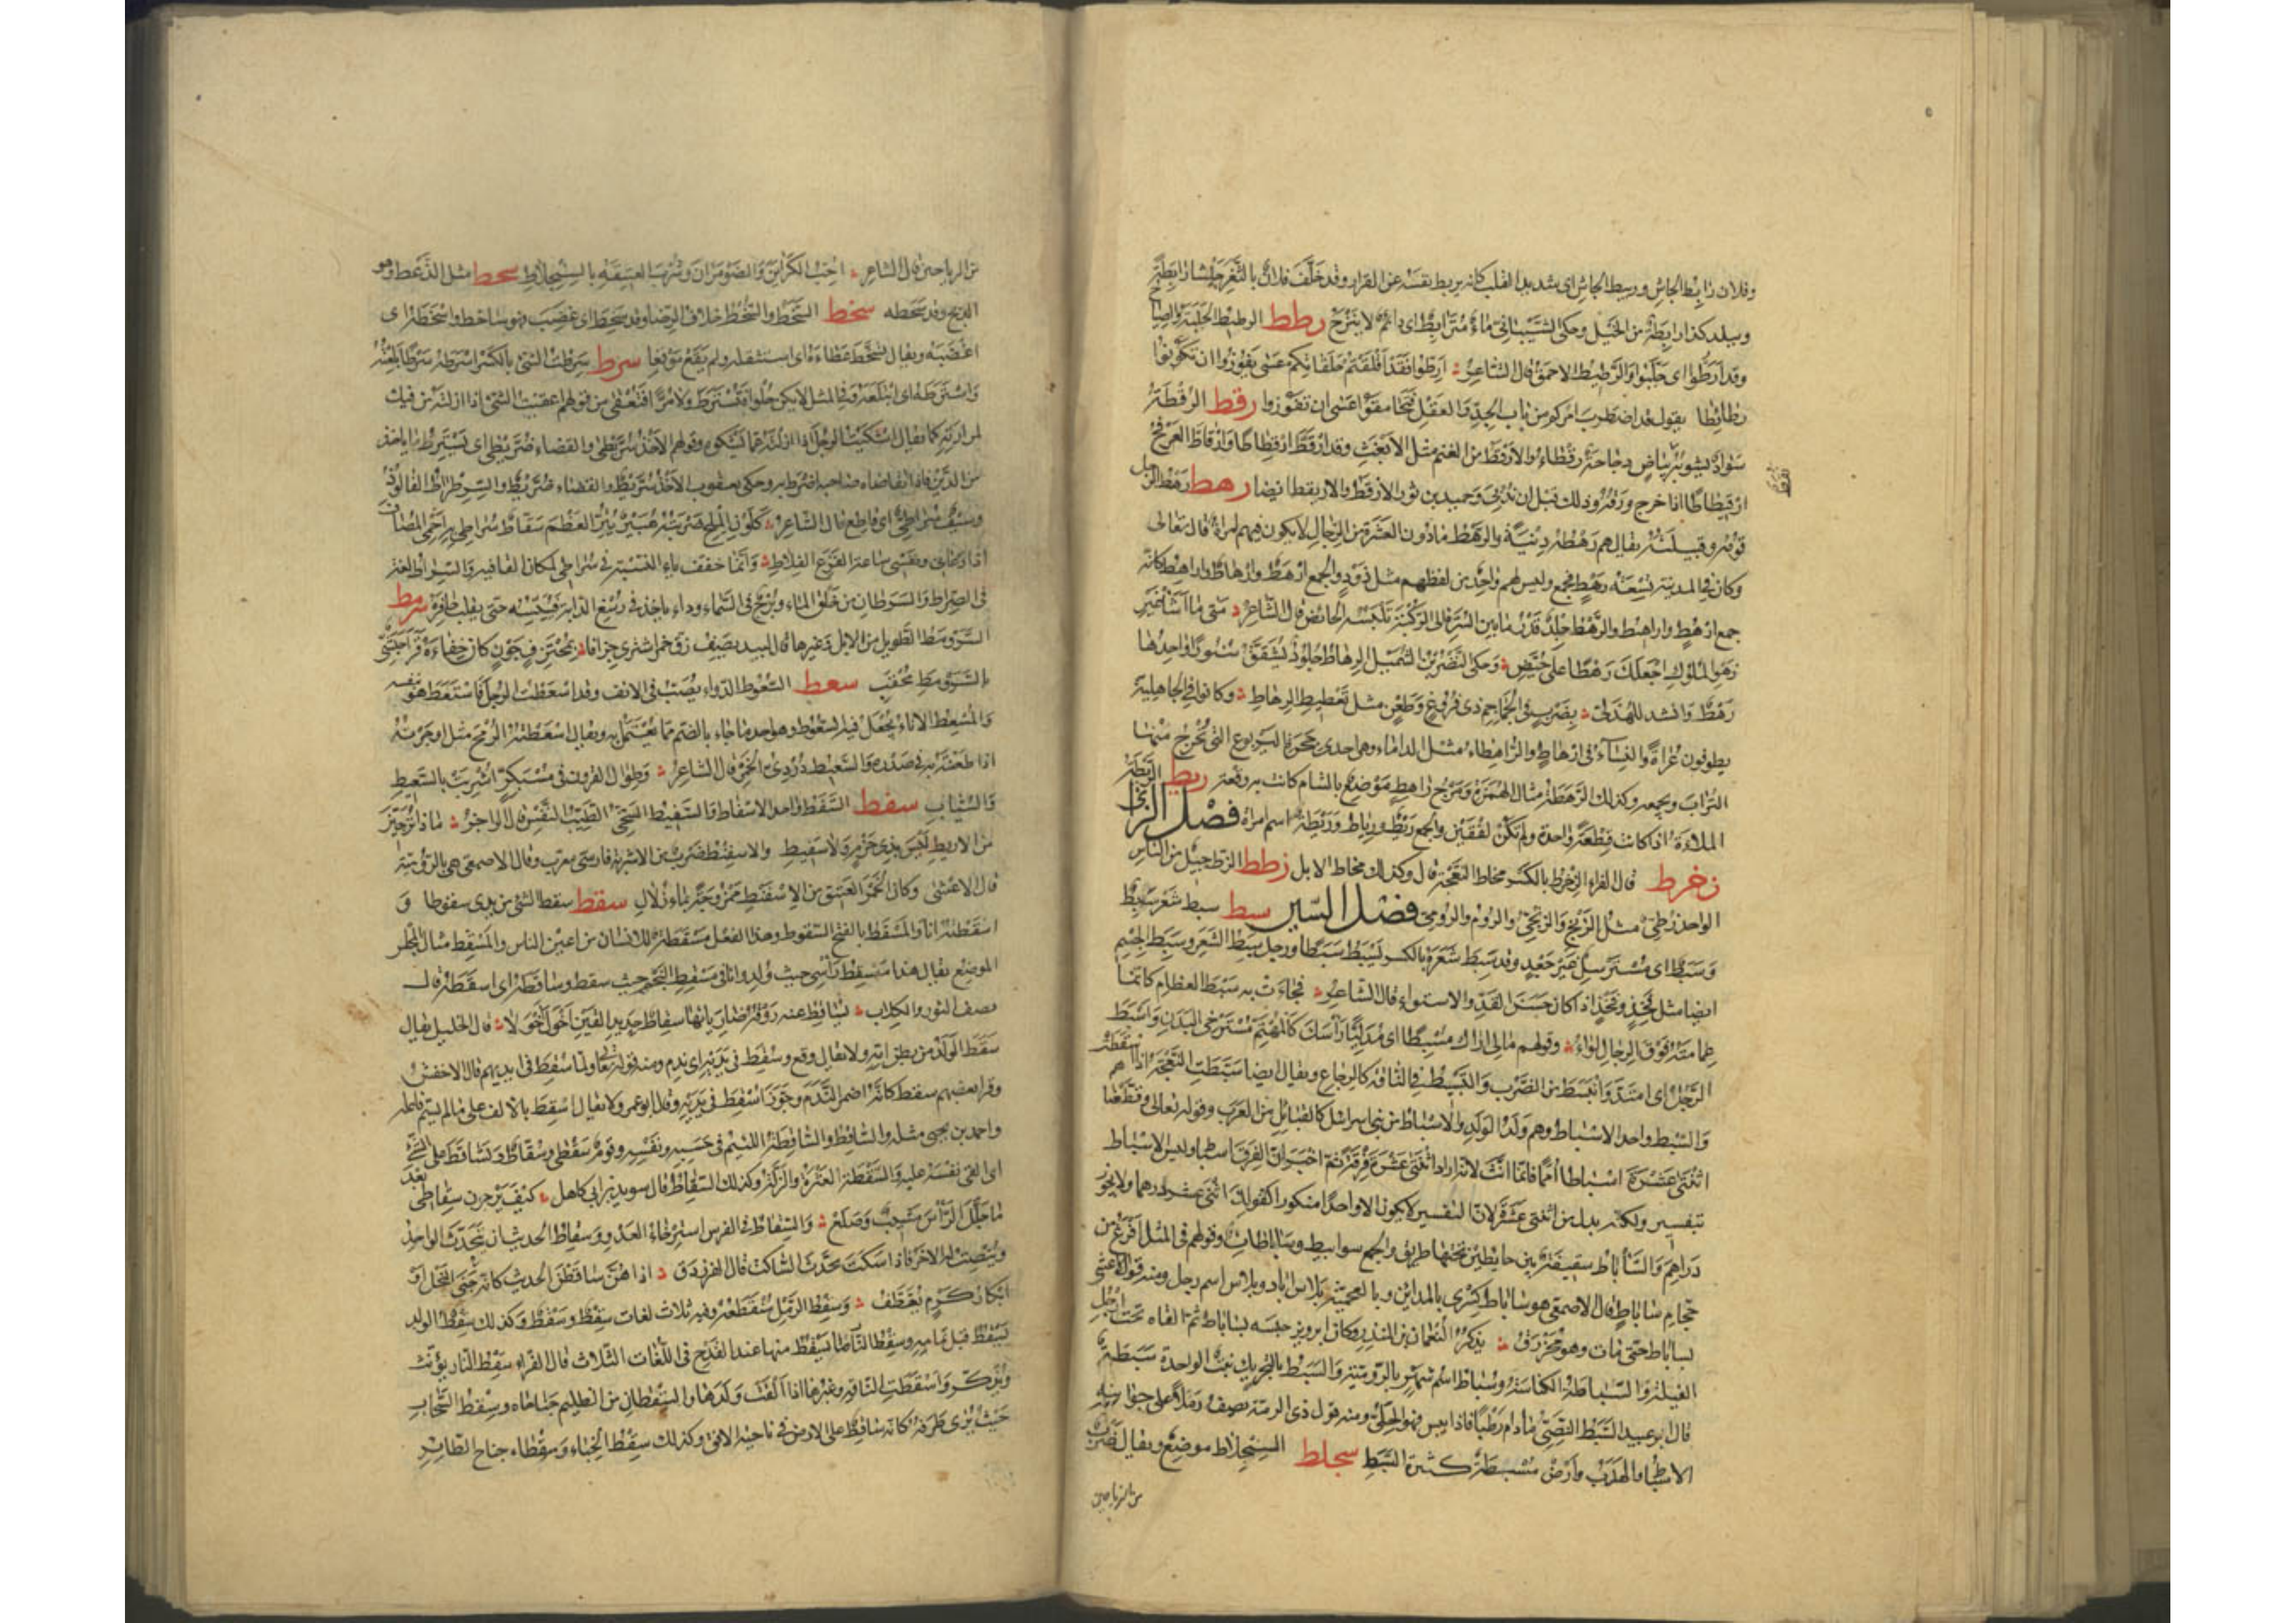 وفلان رابط الجاش وربيط الجاش اى شديد القلب كانه يربط نفسه عن الفرار وقد خلف فلان بالثغر جيشا رابطة
وببلد كذا رابطة من الخيل وحكى الشيبانى ماء مترابط اى دائم لا ينزح رطط الرطيط الجلبة والصياح
وقد ارطوا اى جلبوا والرطيط الاحمق قال الشاعر ارطوا فقد اقلقتم حلقاتكم عسى يفوزوا ان تكونوا
رطائطا يقول قد اضطرب امركم من باب الجد والعقل فتحامقوا عسى ان تفوزوا رقط الرقطة
سواد يشوبه بياض دجاجة رقطاء والارقط من الغنم مثل الابغث وقد ارقط ارقطاطا وارقاط العرفج
ارقيطاطا اذا خرج ورقه وذلك قبل ان يدبى وحميد بن ثور الارقط والاريقط ايضا رهط رهط الرجل
قومه وقبيلته يقال هم رهطه دنية والرهط ما دون العشرة من الرجال لا يكون فيهم امراة قال تعالى
وكان فى المدينة تسعة رهط فجمع وليس لهم واحد من لفظهم مثل ذود والجمع ارهط وارهاط واراهط كانه
جمع ارهط واراهيط والرهط جلد قدر ما بين السرة الى الركبة تلبسه الحائض قال الشاعر متى ما اشا غير
زهو الملوك اجعلك رهطا على حيض وحكى النضر بن الشميل الرهاط جلود تشقق سيورا واحدها
رهط وانشد للهذلى بضرب فى الجماجم ذى فروغ وطعن مثل تعطيط الرهاط وكانوا فى الجاهلية
يطوفون عراة والنساء فى ارهاط والراهطاء مثل الداماء وهى احدى جحرة اليربوع التى تخرج منها
التراب ويجمعه وكذلك الرهطة مثال الهمزة ومرج راهط موضع بالشام كانت به وقعة ريط الريطة
الملاءة اذا كانت قطعة واحدة ولم تكن لفقين والجمع ريط ورياط وريطة اسم امراة فصل الزاى
زخرط قال الفراء الزخرط بالكسر مخاط النعجة قال وكذلك مخاط الابل زطط الزط جيل من الناس
الواحد زطى مثل الزنج والزنجى والروم والرومى فصل السين سبط سبط شعر سبط
وسبط اى مسترسل غير جعد وقد سبط شعره بالكسر يسبط سبطا ورجل سبط الشعر وسبط الجسم
ايضا مثل فخذ وفخذ اذا كان حسن القد والاستواء قال الشاعر فجاءت به سبط العظام كانما
عمامته فوق الرجال لواء وقولهم مالى اراك مسبطا اى مدليا راسك كالمهتم مسترخى البدن واسبط
الرجل اى امتد وانبسط من الضرب والتسبيط فى الناقة كالرجاع ويقال ايضا سبطت النعجة اذا اسقطت
والسبط واحد الاسباط وهم ولد الولد والاسباط من بنى اسرائل كالقبائل من العرب وقوله تعالى وقطعناهم
اثنتى عشرة اسباطا امما فانما انث لانه اراد اثنتى عشرة فرقة ثم اخبر ان الفرق اسباط وليس الاسباط
بتفسير ولكنه بدل من اثنتى عشرة لان التفسير لا يكون الا واحدا منكورا كقولك اثنى عشر درهما ولا يجوز
دراهم والساباط سقيفة بين حايطين تحتها طريق والجمع سوابيط وساباطات وقولهم فى المثل افرغ من
حجام ساباط قال الاصمعى هو ساباط كسرى بالمداين وبالعجمية بلاس اباد وبلاس اسم رجل ومنه قول الاعشى
بساباط حتى مات وهو محرزق يذكر النعمان بن المنذر وكان ابرويز حبسه بساباط ثم القاه تحت ارجل
الفيلة والسباطة الكناسة وسباط اسم شهر بالرومية والسبط بالتحريك نبت الواحدة سبطة
قال ابو عبيد السبط النصى ما دام رطبا فاذا يبس فهو الحلى ومنه قول ذى الرمة يصف رملا على جوانبه
الاسباط والهدب وارض مسبطة كثيرة السبط سجلط السجلاط موضع ويقال ضرب
من الرياحين
من الرياحين قال الشاعر احب الكرائن والضومران وشرب العتيقة بالسنجلاط سحط مثل الذعط وهو
الذبح وقد سحطه سخط السخط والسخط خلاف الرضا وقد سخط اى غضب فهو ساخط واسخطه اى
اغضبه ويقال تسخط عطاءه اى استقله ولم يقع موقعا سرط سرطت الشئ بالكسر اسرطه سرطا بلعته
واسترطه اى ابتلعه وفى المثل لا تكن حلوا فتسترط ولا مرا فتعقى من قولهم اعقيت الشئ اذا ازلته من فيك
لمرارته كما يقال اشكيت الرجل اذا ازلته عما يشكوه وقولهم الاخذ سريطى والقضاء ضريطى اى يسترط ما ياخذ
من الدين فاذا تقاضاه صاحبه اضرط به وحكى يعقوب الاخذ سريط والقضاء ضريط والسرطراط الفالوذ
وسيف سراطى اى قاطع قال الشاعر كلون الملح ضربته هبير يتر العظم سقاط سراطى به احمى المضاف
اذا دعانى ونفسى ساعة الفزع الفلاط وانما خفف ياء النسبة فى سراطى لمكان القافية والسراط لغة
فى الصراط والسرطان من خلق الماء وبرج فى السماء وداء ياخذ فى رسغ الدابة فييبسه حتى يقلب حافره سرمط
السرومط الطويل من الابل وغيرها قال لبيد يصف زق خمر اشترى جزافا ومجتزف جون كان خفاءه قرا حبشى
بالسرومط محقب سعط السعوط الدواء يصب فى الانف وقد اسعطت الرجل فاستعط هو بنفسه
والمسعط الاناء يجعل فيه السعوط وهو احد ما جاء بالضم مما يعتمل به ويقال اسعطته الرمح مثل اوجرته
اذا طعنته به فى صدره والسعيط دردى الخمر قال الشاعر وطوال القرون فى مسبكر اشربت بالسعيط
والسياب سفط السفط واحد الاسفاط والسفيط السخى الطيب النفس قال الراجز ماذا ترجين
من الاريط ليس بذى حزم ولا سفيط والاسفنط ضرب من الاشربة فارسى معرب وقال الاصمعى هى بالرومية
قال الاعشى وكان الخمر العتيق من الاسفنط ممزوجة بماء زلال سقط سقط الشئ من يدى سقوطا و
اسقطته انا والمسقط بالفتح السقوط وهذا الفعل مسقطة للانسان من اعين الناس والمسقط مثال المجلس
الموضع يقال هذا مسقط راسى حيث ولد وانانى مسقط النجم حيث سقط وساقطه اى اسقطه قال
يصف الثور والكلاب يساقط عنه روقه ضارياتها سقاط حديد القين اخول اخولا قال الخليل يقال
سقط الولد من بطن امه ولا يقال وقع وسقط فى يديه اى ندم ومنه قوله تعالى ولما سقط فى ايديهم قال الاخفش
وقرا بعضهم سقط كانه اضمر الندم وجوز اسقط فى يديه وقال ابو عمرو لا يقال اسقط بالالف على ما لم يسم فاعله
واحمد بن يحيى مثله والساقط والساقطة اللئيم فى حسبه ونفسه وقوم سقطى وسقاط وتساقط على الشئ
اى القى نفسه عليه والسقطة العثرة والزلة وكذلك السقاط قال سويد بن ابى كاهل كيف يرجون سقاطى بعد
ما جلل الراس مشيب وصلع والسقاط فى الفرس استرخاء العدو وسقاط الحديث ان يتحدث الواحد
وينصت له الاخر فاذا سكت تحدث الساكت قال الفرزدق اذا هن ساقطن الحديث كانه جنى النحل او
ابكار كرم يقطف وسقط الرمل منقطعه وفيه ثلاث لغات سقط وسقط وسقط وكذلك سقط الولد
يسقط قبل تمامه وسقط النار ما يسقط منها عند القدح فى اللغات الثلاث قال الفراء سقط النار يؤنث
ويذكر واسقطت الناقة وغيرها اذا القت ولدها والسقطان من الظليم جناحاه وسقط السحاب
حيث يرى طرفه كانه ساقط على الارض فى ناحية الافق وكذلك سقط الخباء وسقطاه جناح الطاير